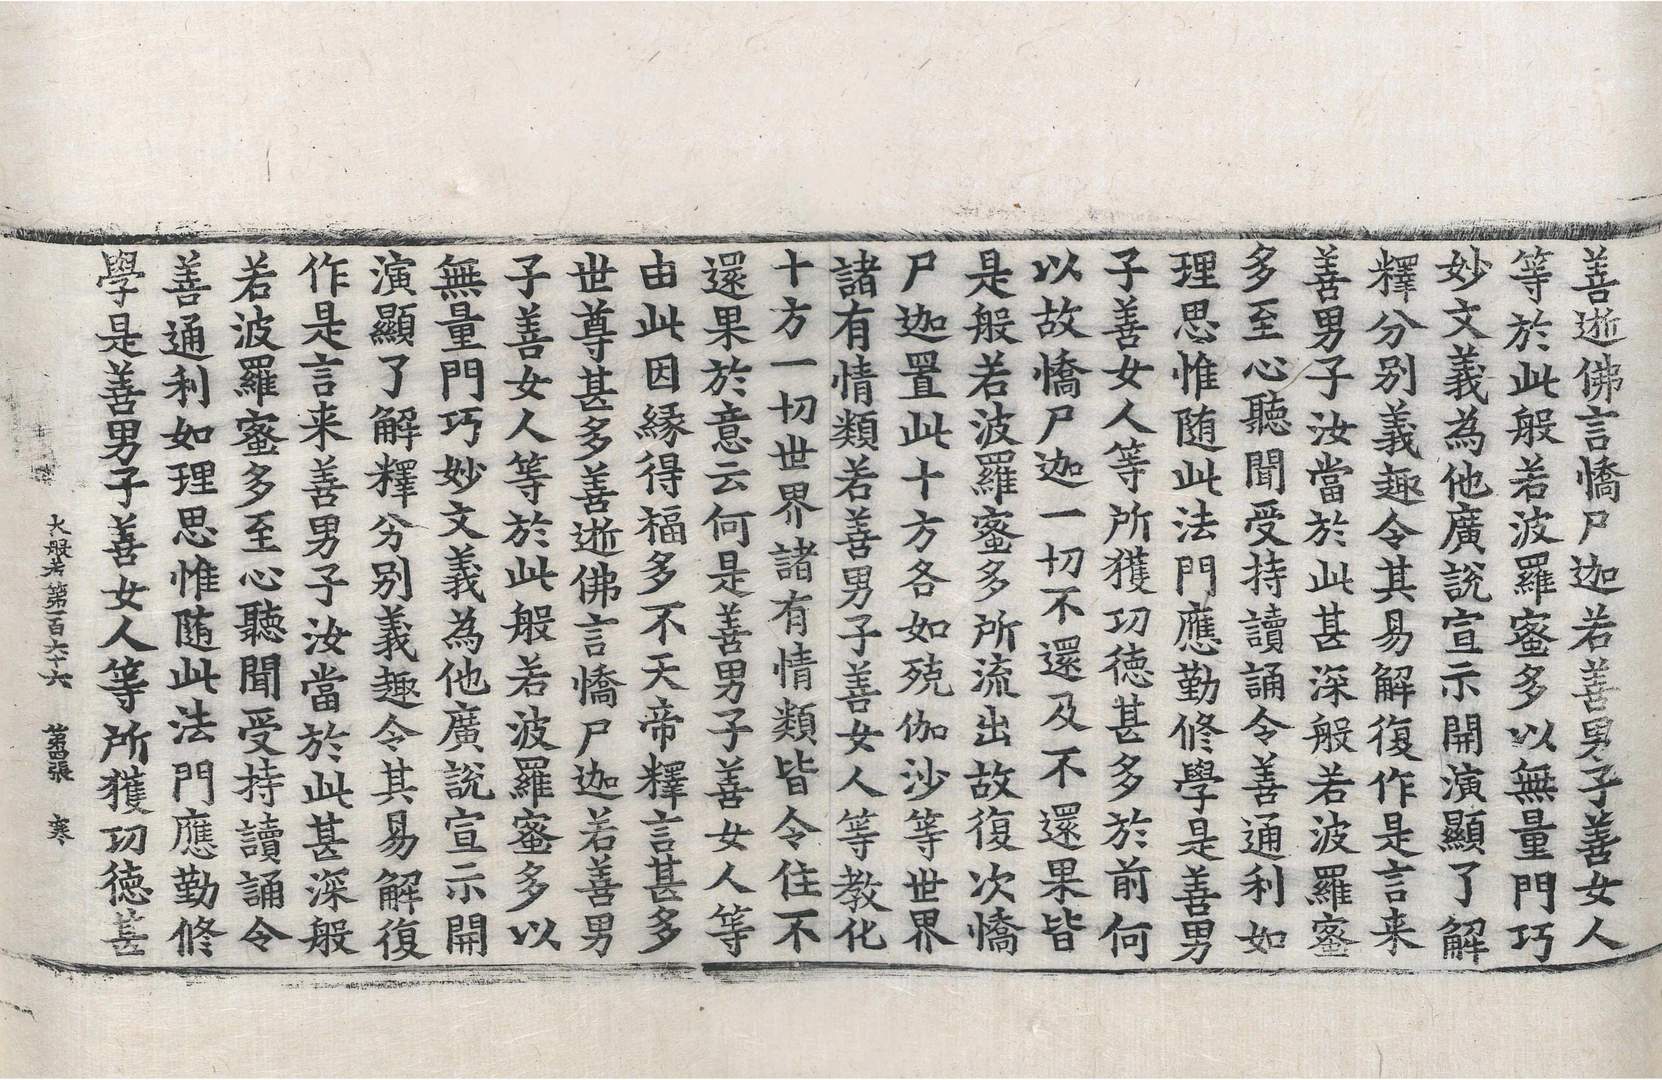 善逝佛言憍尸迦若善男子善女人
等於此般若波羅蜜多以無量門巧
妙文義為他廣說宣示開演顯了解
釋分別義趣令其易解復作是言来
善男子汝當於此甚深般若波羅蜜
多至心聽聞受持讀誦令善通利如
理思惟随此法門應勤修學是善男
子善女人等所獲功德甚多於前何
以故憍尸迦一切不還及不還果皆
是般若波羅蜜多所流出故復次憍
尸迦置此十方各如殑伽沙等世界
諸有情類若善男子善女人等教化
十方一切世界諸有情類皆令住不
還果於意云何是善男子善女人等
由此因緣得福多不天帝釋言甚多
世尊甚多善逝佛言憍尸迦若善男
子善女人等於此般若波羅蜜多以
無量門巧妙文義為他廣說宣示開
演顯了解釋分別義趣令其易解復
作是言来善男子汝當於此甚深般
若波羅蜜多至心聽聞受持讀誦令
善通利如理思惟随此法門應勤修
學是善男子善女人等所獲功德甚
大般若第一百六十六 第四張 寒